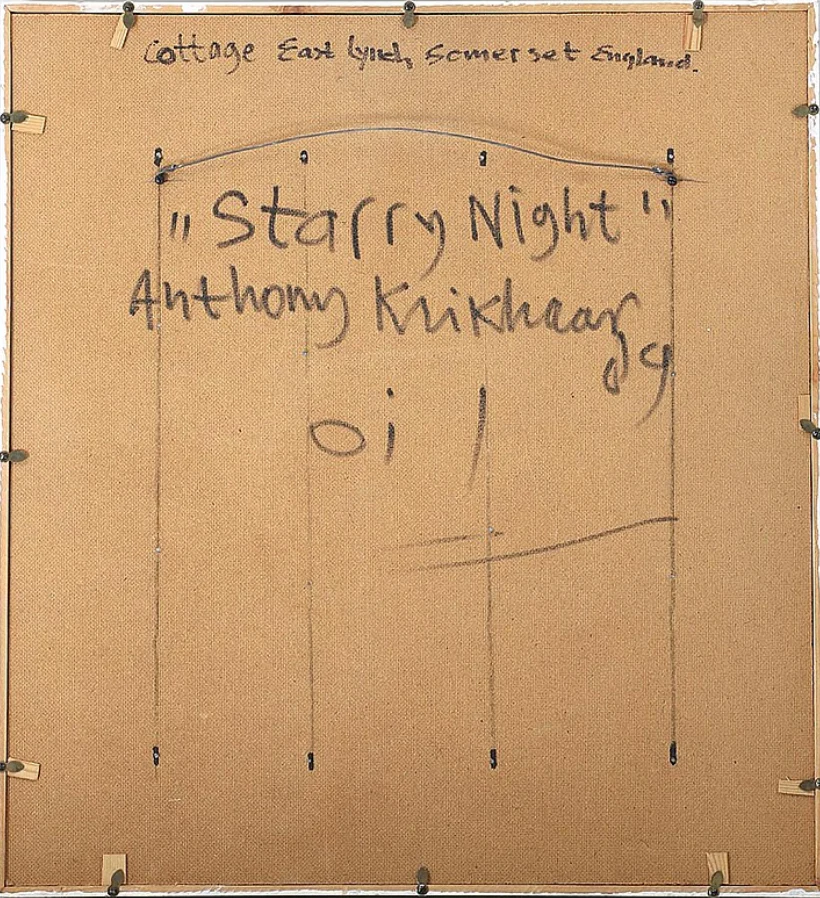 Cottage East Lynch, Somerset England.
"Starry Night"
Anthony Krikhaar
oil